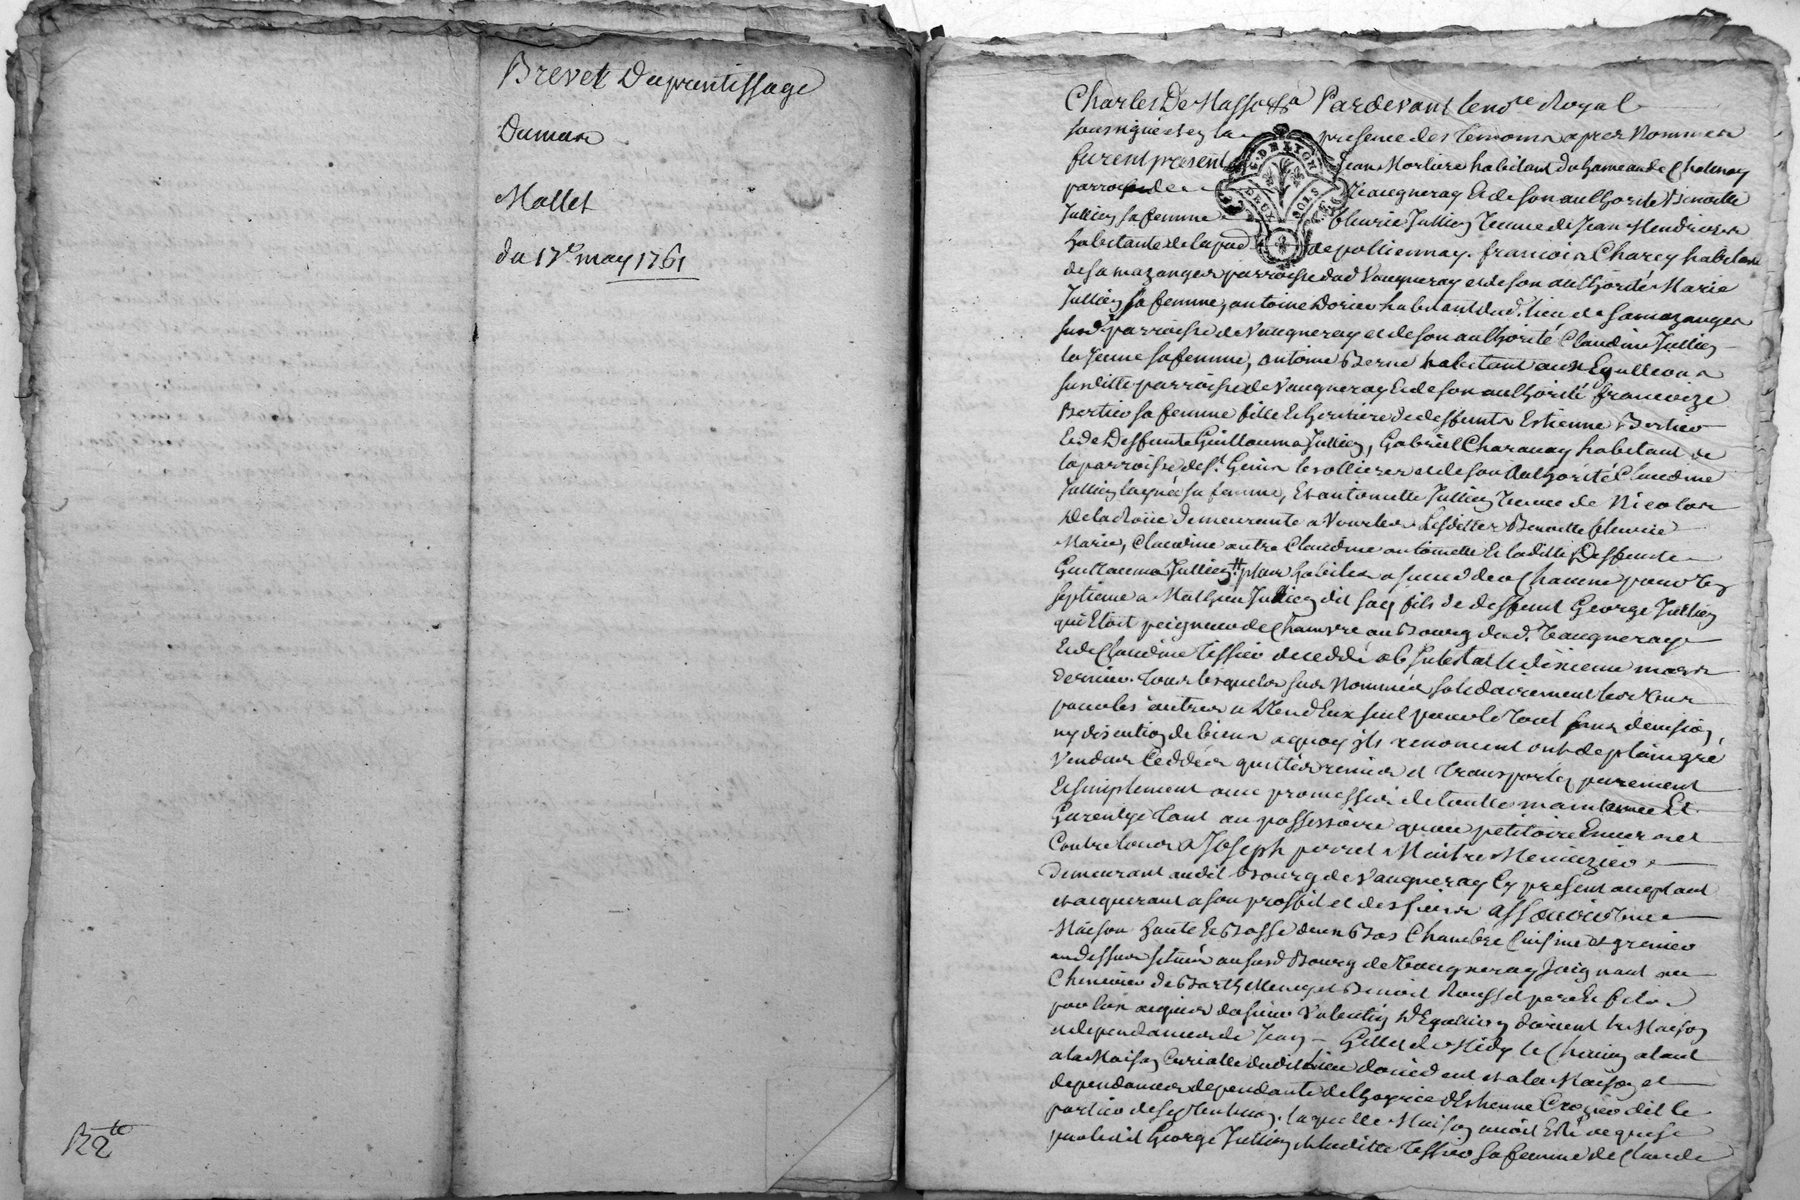 Brevet Daprentissage
Dumas
Mallet
du 17e may 1761
Charles De Masso &a Pardevant le nore Royal
soussigné et en la presence des Temoins apres Nommés
furent present Jean Morlier habitant du hameau de Chatenay
parroisse de Vaugneray Et de son authorité Benoitte
Jullien sa femme fleurie Jullien Veuve de Jean
habitante de la par de pollionnay. francois Charey habitant
de parroisse dud Vaugneray et de son authorité Marie
Jullien sa femme, antoine Dorier habitant dud. lieu de
susd parroisse de Vaugneray et de son authorité Claudine Jullien
la Jeune sa femme, antoine Berne habitant aux
susditte parroisse de Vaugneray Et de son authorité francoize
Bertier sa femme fille Et heritiere de deffunts Estienne Bertier
Et de Deffunte Guillauma Jullien, Gabriel Charanay habitant de
la parroisse de St Genis les ollieres et de son Authorité Claudine
Jullien laynée sa femme, Et antoinette Jullien Veuve de Nicolas
Delaroüe demeurante a Vourles Lesdittes Benoitte fleurie
Marie, Claudine autre Claudine antoinette Et laditte Deffunte
Guillauma Jullien # pour habiles a succeder Chacune pour un
septieme a Mathieu Jullien dit fils de deffunt George Jullien
qui Etoit peigneur de Chanvre au Bourg dud. Vaugneray
Et de Claudine Tissier decedé ab Intestat le dixieme mars
dernier. Tous lesquels sus Nommés solidairement les uns
pour les autres un d'Eux seul pour le Tout sans division,
ny discution de biens a quoy ils renoncent ont de plain gré
Vendus Ceddés quittés remis et transportés purement
Et simplement avec promesse de toutte maintenue Et
Garentye tant au possessoire qu'au petitoire Envers et
Contre tous a Joseph perret Maitre Menuizier
demeurant audit Bourg de Vaugneray Cy present acceptant
et acquerant a son proffit et des siens assavoir Une
Maison haute Et Basse deux Bas Chambre Cuisine et grenier
au dessus située au susd Bourg de Vaugneray Joignant
de Barthelemy et Benoit Rousset pere Et fils
par Eux acquis du sieur Valentin d'orient la Maison
et dependances de Jean Gillet de Midy le Chemin alant
a la Maison Curialle dudit Lieu d'occident et a la Maison et
dependances dependante de l'hoirie d'Estienne Crozier dit le
de septentrion. laquelle Maison avoit Eté acquise
par ledit George Jullien Et laditte Tissier sa femme de Claude